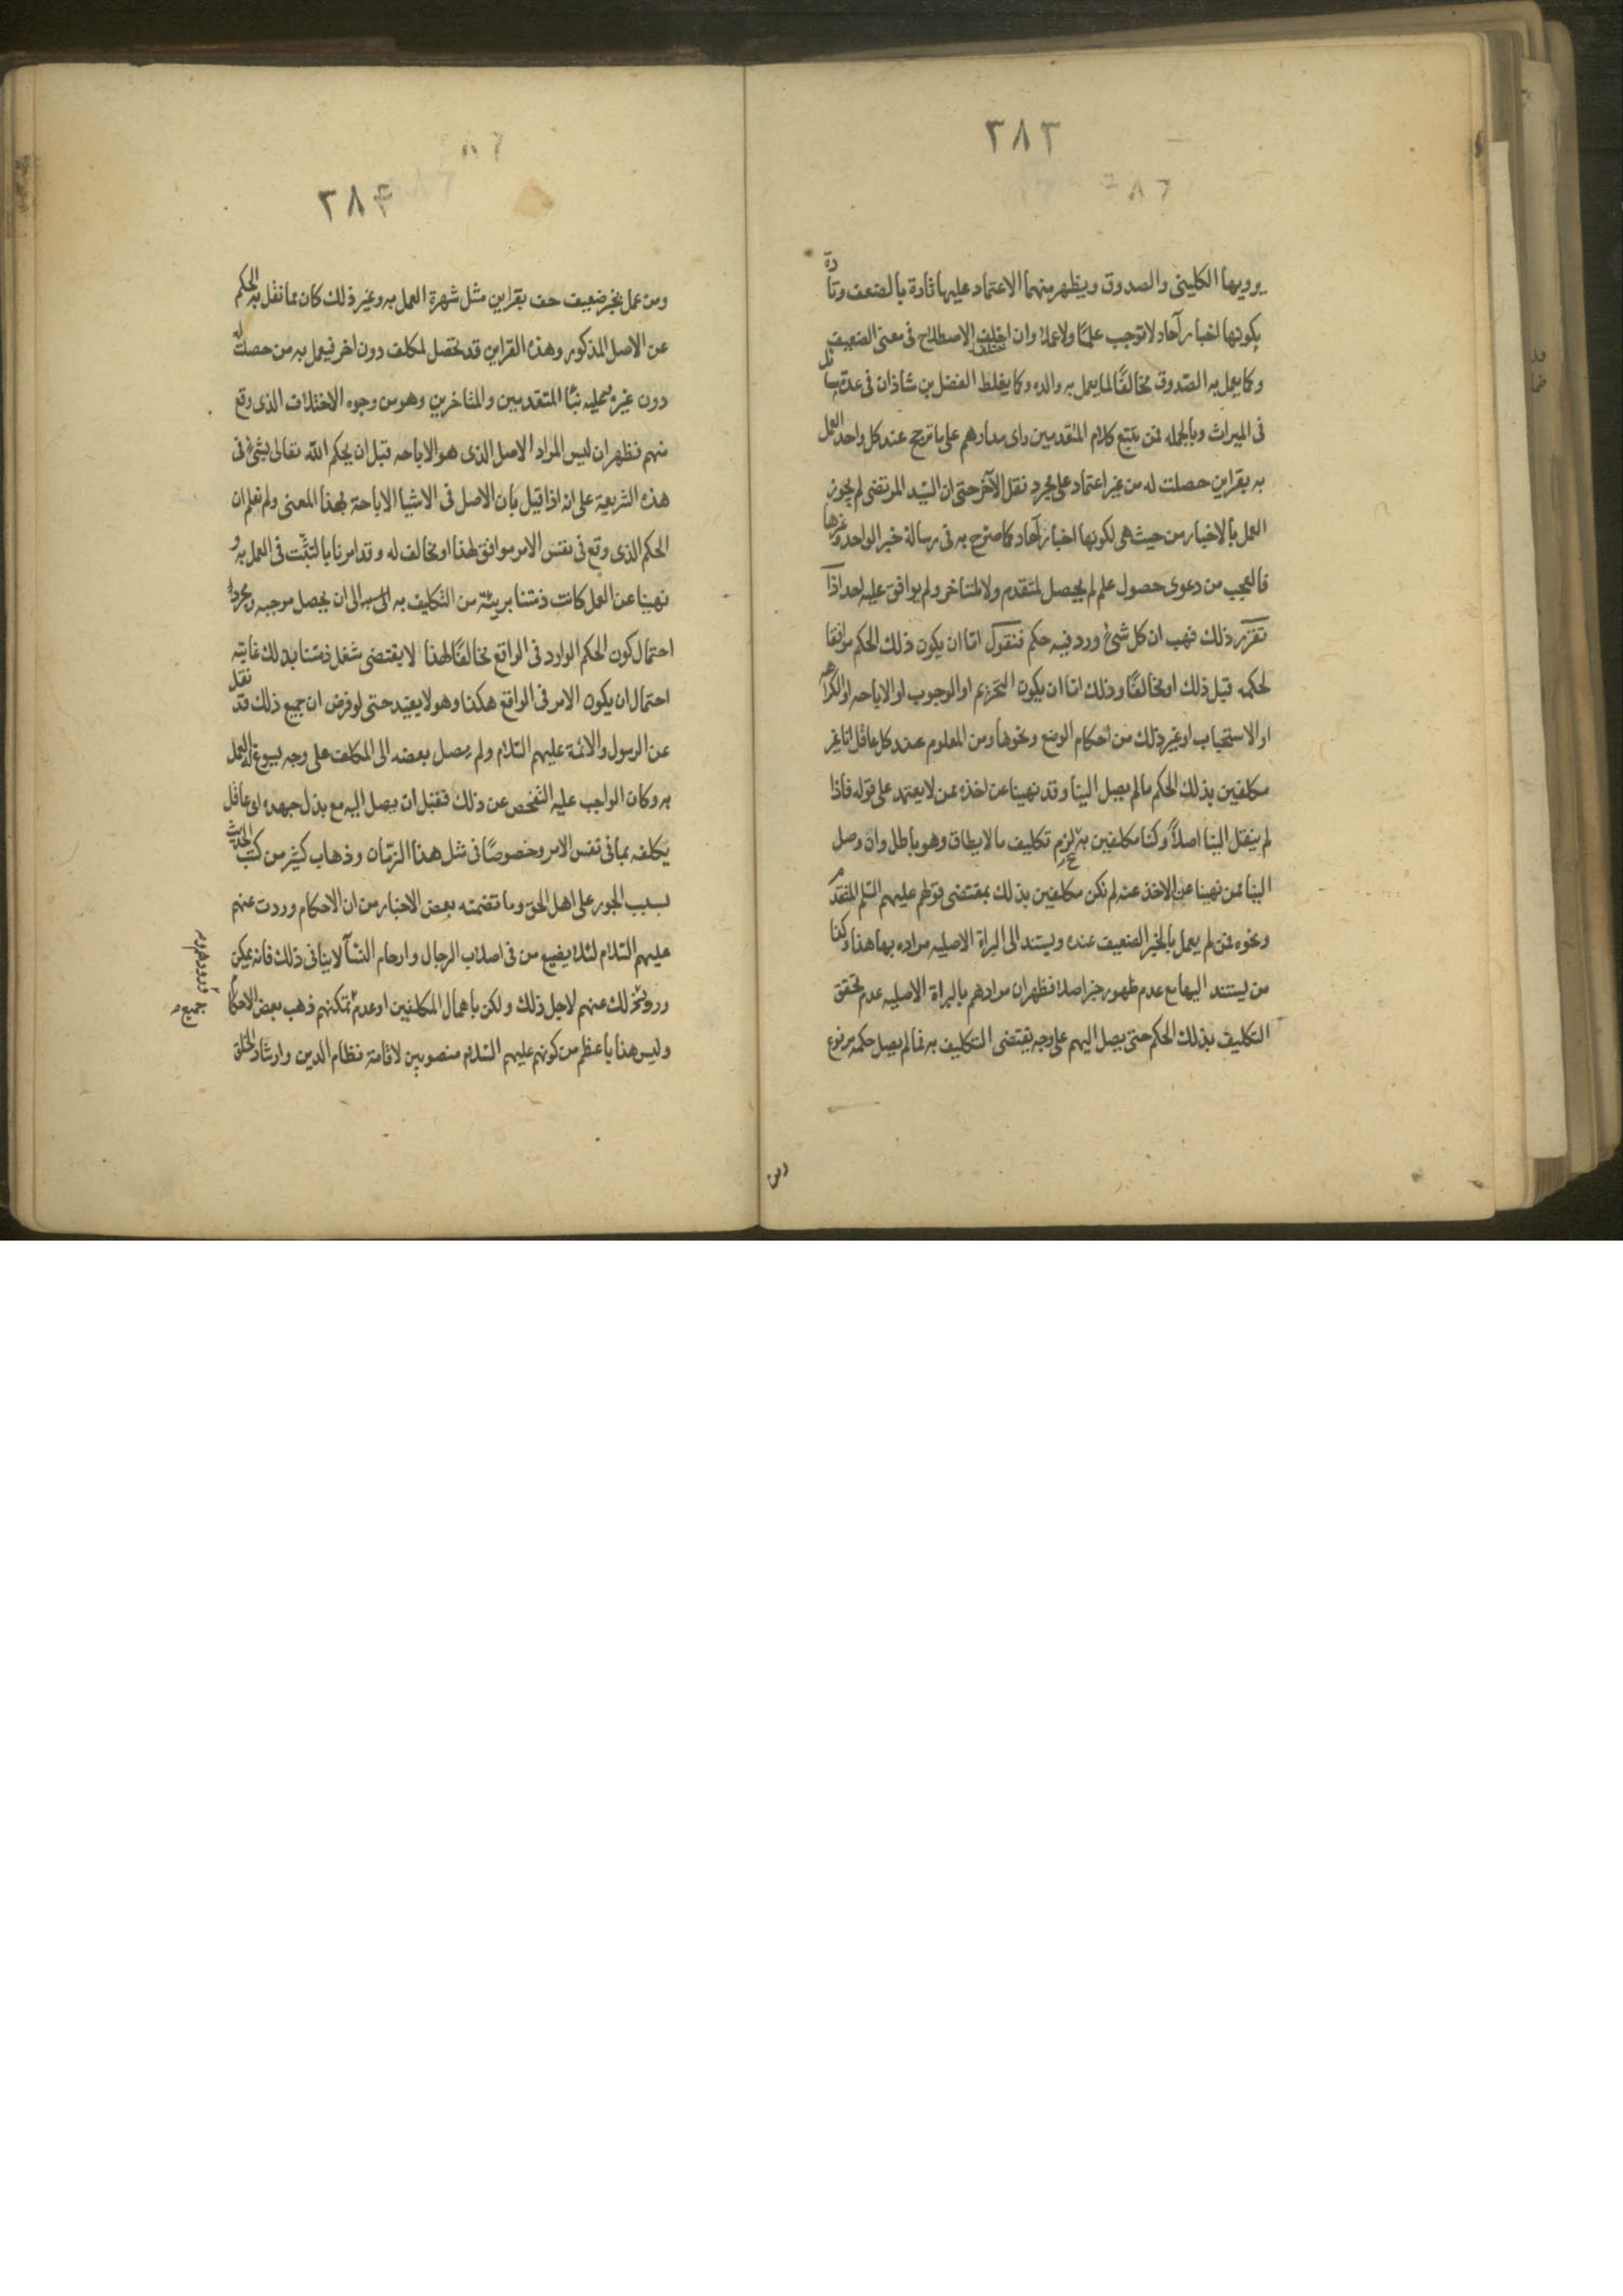 ٣٨٣
يرويها الكلينى والصدوق ويظهر منهما الاعتماد عليها تارة بالضعف وتارة
بكونها اخبار آحاد لا توجب علمًا ولا عملا وان اختلف الاصطلاح فى معنى الضعيف
وكما يعمل به الصّدوق مخالفًا لما يعمل به والده وكما يغلط الفضل بن شاذان فى عدة مسائل
فى الميراث وبالجمله فمن تتبع كلام المتقدمين راى مدارهم على ما ترجح عند كل واحد العمل
به بقراين حصلت له من غير اعتماد على مجرد نقل الآخر حتى ان السّيد المرتضى لم يجوز
العمل بالاخبار من حيث هى لكونها اخبار آحاد كما صرّح به فى رسالة خبر الواحد وغيرها
فالعجب من دعوى حصول علم لم يحصل لمتقدم ولا لمتاخر ولم يوافق عليه احد اذا
تقرّر ذلك فهب ان كل شىء ورد فيه حكم فنقول امّا ان يكون ذلك الحكم موافقا
لحكمه قبل ذلك او مخالفًا وذلك امّا ان يكون التحريم او الوجوب او الاباحه او الكراهه
او الاستحباب او غير ذلك من احكام الوضع ونحوها ومن المعلوم عند كل عاقل انا غير
مكلفين بذلك الحكم ما لم يصل الينا وقد نهينا عن اخذه عمن لا يعتمد على قوله فاذا
لم ينقل الينا اصلاً وكنا مكلفين به لزم تكليف ما لا يطاق وهو باطل وان وصل
الينا عمن نهينا عن الاخذ عنه لم نكن مكلفين بذلك بمقتضى قولهم عليهم السّلم المتقدم
ونحوه فمن لم يعمل بالخبر الضعيف عنده ويستند الى البراة الاصليه مراده بها هذا وكذا
من يستند اليها مع عدم ظهور خبر اصلا فظهر ان مرادهم بالبراة الاصليه عدم تحقق
التكليف بذلك الحكم حتى يصل اليهم على وجه يقتضى التكليف به فما لم يصل حكمه مرفوع
ومن
٣٨٤
ومن عمل بخبر ضعيف حف بقراين مثل شهرة العمل به وغير ذلك كان مما نقل به الحكم
عن الاصل المذكور وهذه القراين قد تحصل لمكلف دون اخر فيعمل به من حصلت له
دون غيره المتقدمين والمتاخرين وهو من وجوه الاختلاف الذى وقع
منهم فظهر ان ليس المراد الاصل الذى هو الاباحه قبل ان يحكم الله تعالى بشىء فى
هذه الشريعة على انه اذا قيل بان الاصل فى الاشيا الاباحة بهذا المعنى ولم نعلم ان
الحكم الذى وقع فى نفس الامر موافق لهذا او مخالف له وقد امرنا بالتثبّت فى العمل به و
نهينا عن العمل كانت ذمتنا بريئة من التكليف به الى ان يحصل موجبه ومجرد
احتمال كون الحكم الوارد فى الواقع مخالفًا لهذا لا يقتضى شغل ذمتنا بذلك غايته
احتمال ان يكون الامر فى الواقع هكذا وهو لا يفيد حتى لو فرض ان جميع ذلك قد نقل
عن الرسول والائمة عليهم السّلام ولم يصل بعضه الى المكلف على وجه يسوغ له العمل
به وكان الواجب عليه التفحص عن ذلك فقبل ان يصل اليه مع بذل جهده اى عاقل
يكلفه بما فى نفس الامر وخصوصًا فى مثل هذا الزّمان وذهاب كثير من كتب الحديث
بسبب الجور على اهل الحق وما تضمنه بعض الاخبار من ان الاحكام وردت عنهم
عليهم السّلام لئلا يضيع من فى اصلاب الرجال وارحام النّسآ لا ينافى ذلك فانه يمكن
ورود ذلك عنهم لاجل ذلك ولكن باهمال المكلفين او عدم تمكنهم ذهب بعض الاحكام
وليس هذا باعظم من كونهم عليهم السّلام منصوبين لاقامة نظام الدين وارشاد الخلق
جميع